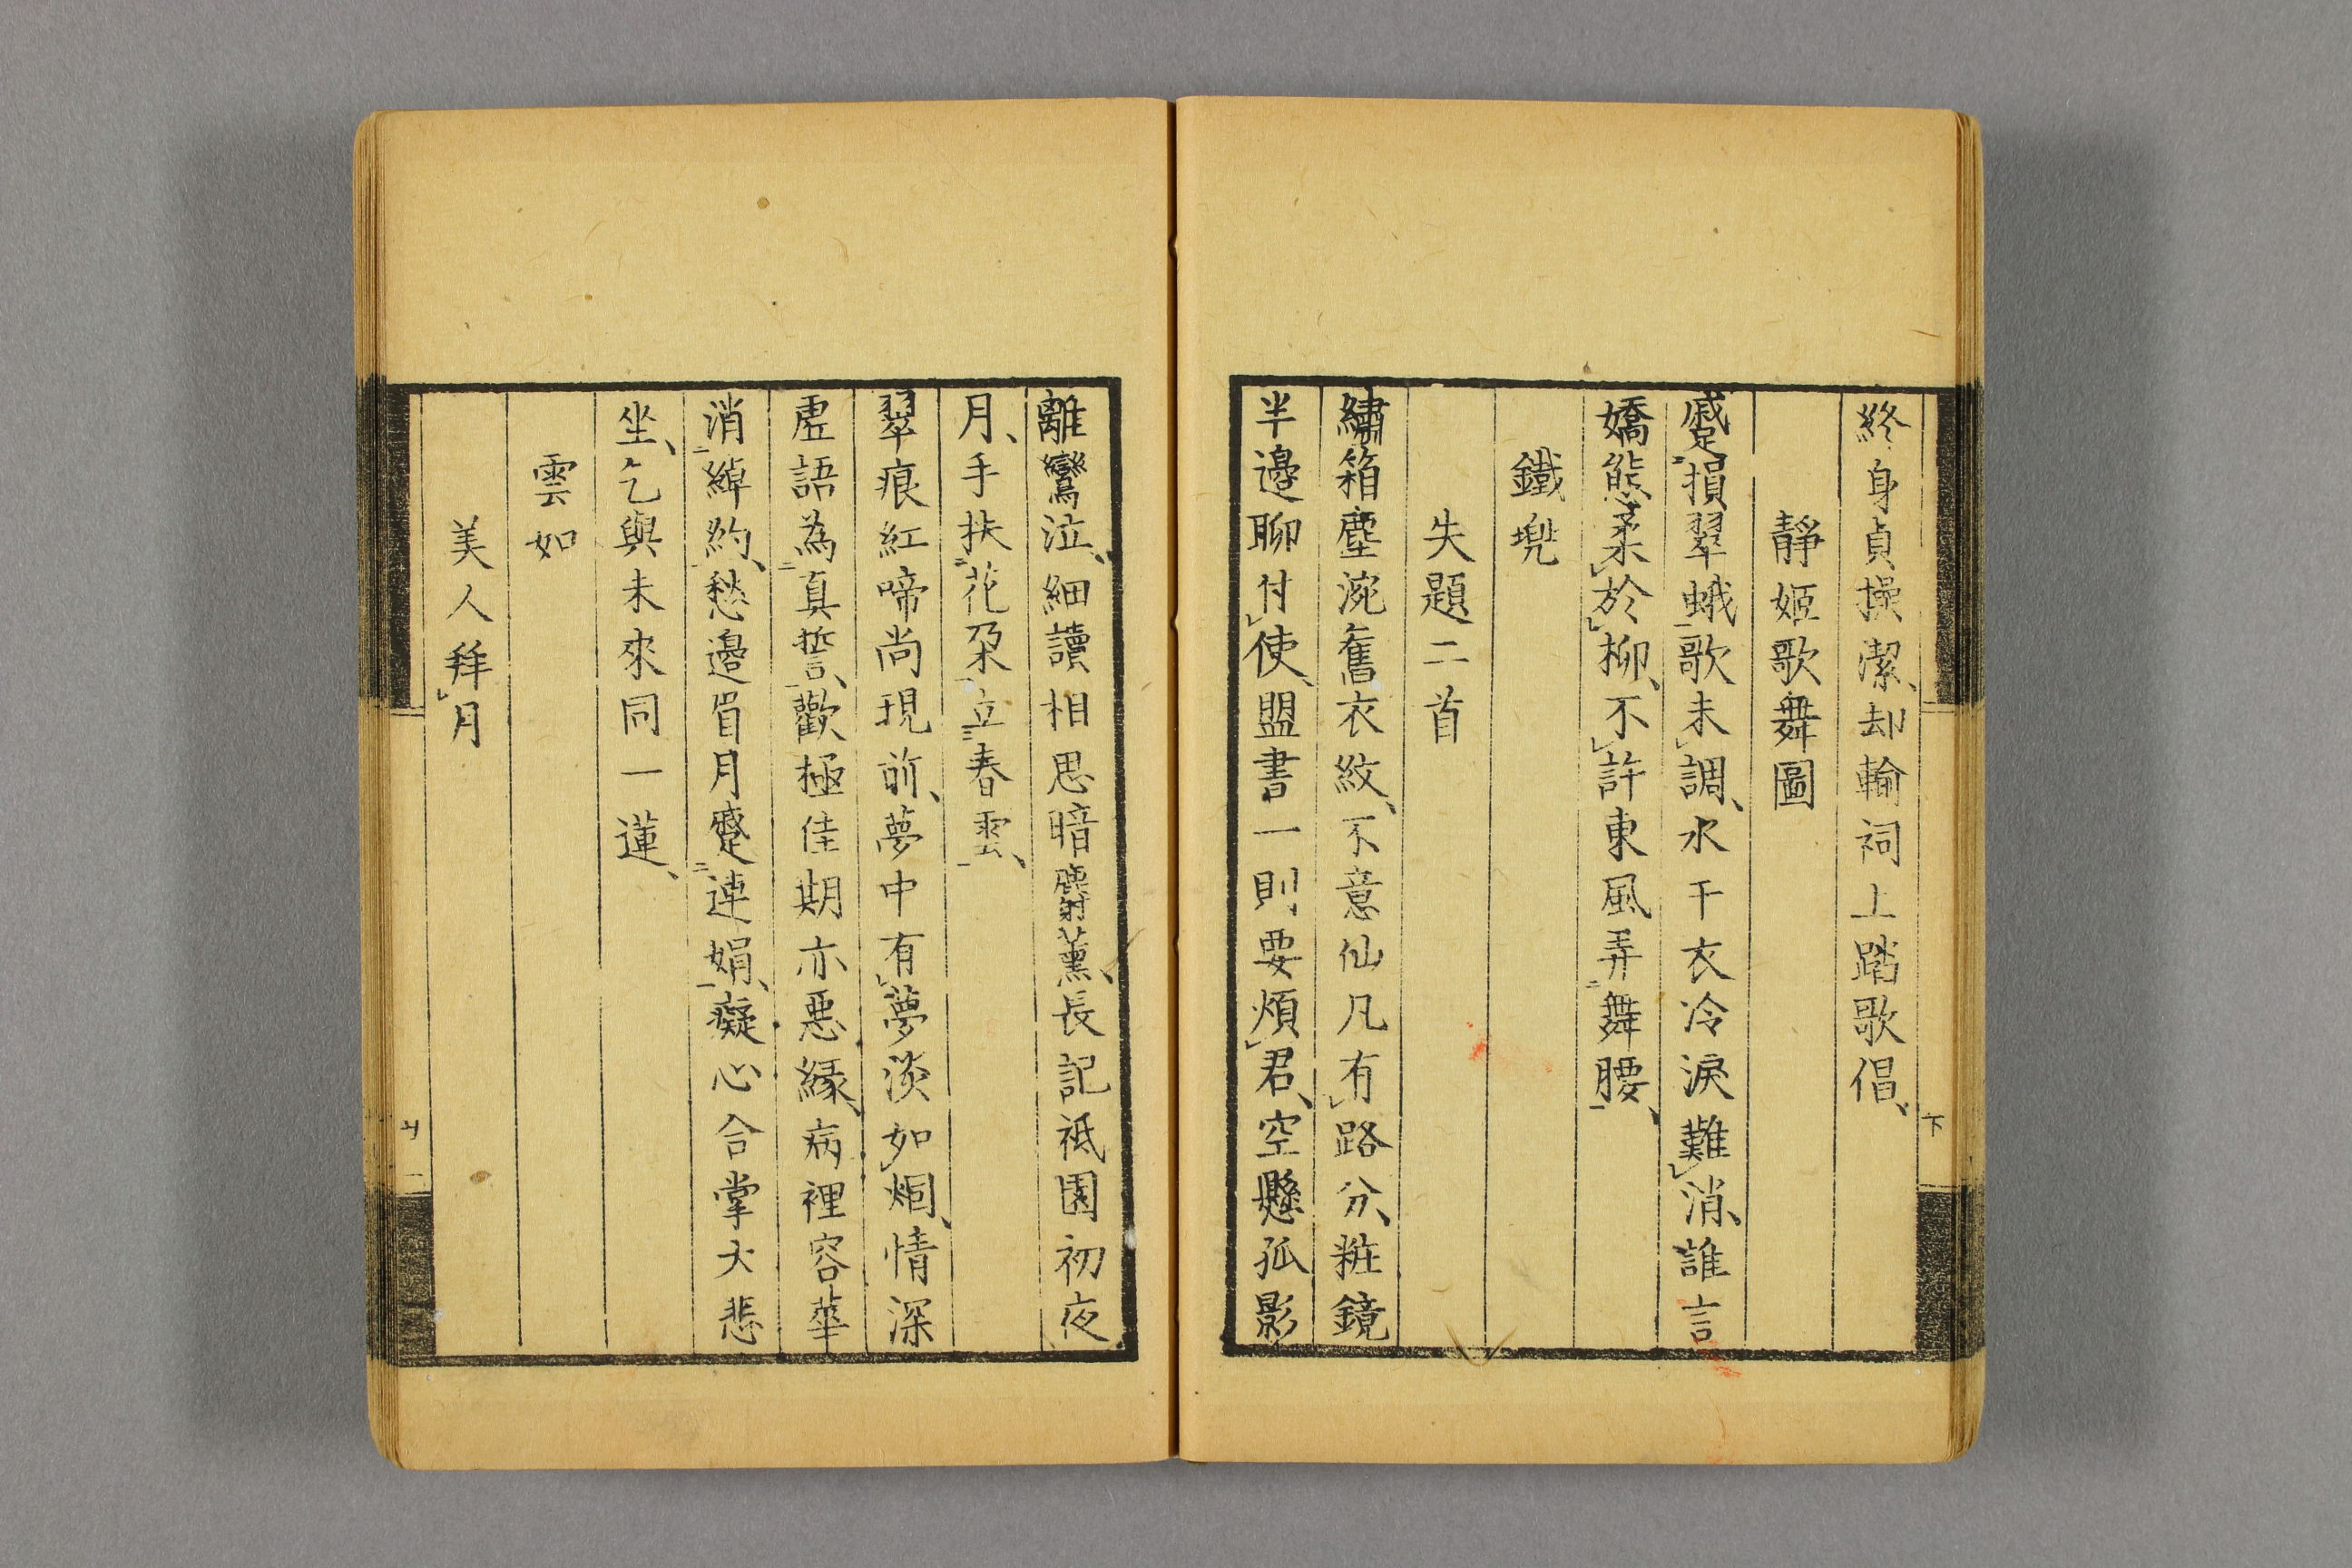 終身貞操潔、却輸祠上踏歌倡、
靜姬歌舞圖
蹙損翠蛾歌未調、水干衣冷淚難消、誰言
嬌態柔於柳、不許東風弄舞腰、
鐵兜
失題二首
繡箱塵涴舊衣紋、不意仙凡有路分、粧鏡
半邊聊付使、盟書一則要煩君、空懸孤影
離鸞泣、細讀相思暗麝薰、長記祗園初夜
月、手扶花朶立春雲、
翠痕紅啼尚現前、夢中有夢淡如烟、情深
虛語為真誓、歡極佳期亦惡緣、病裡容華
消綽約、愁邊眉月蹙連娟、癡心合掌大悲
坐、乞與未來同一蓮、
雲如
美人拜月
下